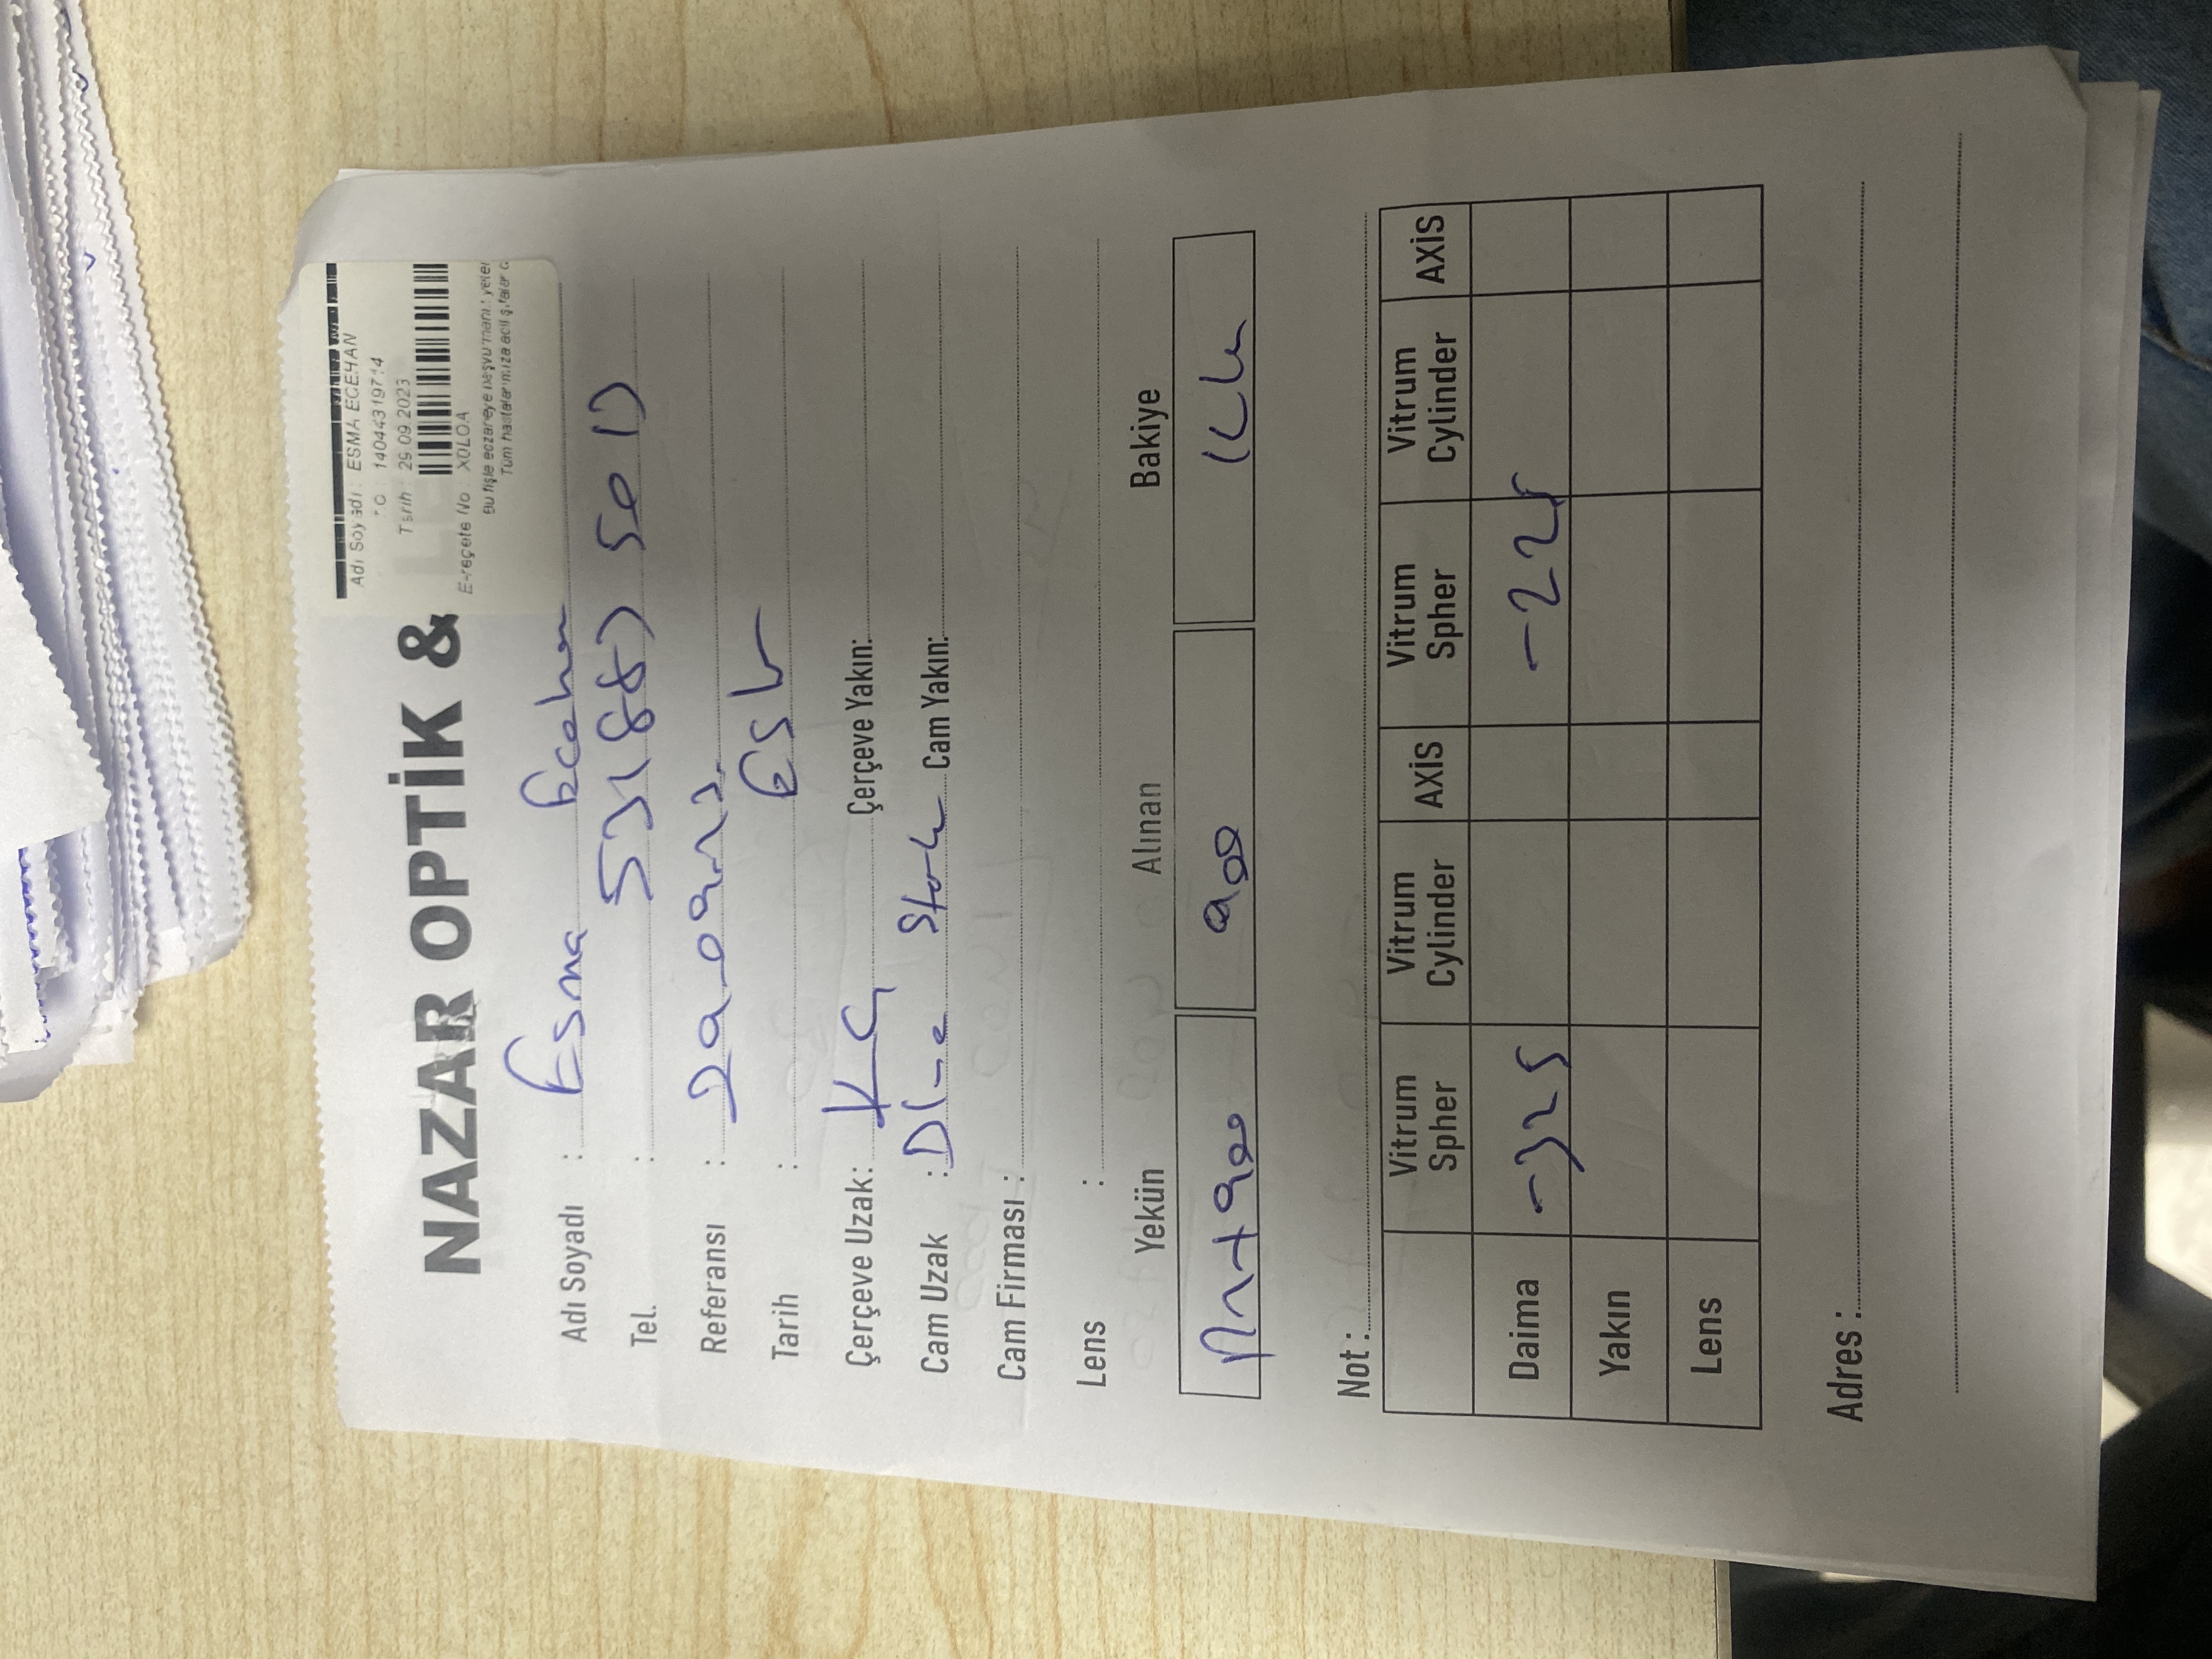 Adı Soyadı : ESMA ECEHAN
14044319714
Tarih : 29.09.2023
E-reçete No : X0LOA
Bu fişle eczaneye
Tüm hastalarımıza acil şifalar
NAZAR OPTİK &
Adı Soyadı : Esma Ecehan
Tel. : 531 883 50 13
Referansı :
Tarih :
Çerçeve Uzak: KÇ Çerçeve Yakın:
Cam Uzak : Cam Yakın:
Cam Firması :
Lens :
Yekün Alınan Bakiye
900 KK
Not :
Vitrum Spher Vitrum Cylinder AXİS Vitrum Spher Vitrum Cylinder AXİS
Daima -325 -225
Yakın
Lens
Adres :